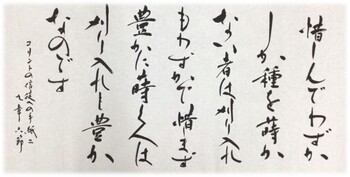 惜しんでわずか
しか種を蒔か
ない者は刈り入れ
もわずかで惜まず
豊かに蒔く人は
刈り入れも豊か
なのです
コリントの信徒への手紙二
九章六節